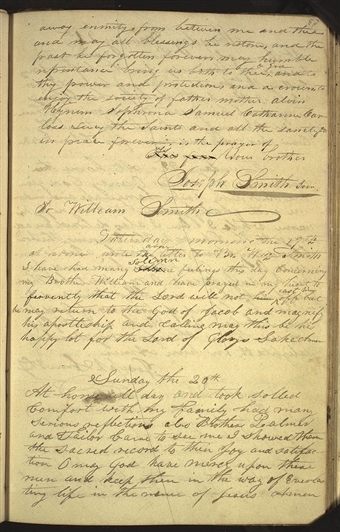 away enmity from between me and thee
and may all blessings be restored, and the
past be forgotten forever may humble
repentance bring us both to thee, and to
thy power and protection, and a crown to
enjoy the society of father mother Alvin
Hyrum Sophronia Samuel Catharine Car
los Lucy the Saints and all the sanctified
in peace forever, is the prayer of
Your brother
Joseph Smith Jun
To William Smith
Saturday morning the 19th
at home wrote the letter to Wm. Smith
I have had many solemn feelings this day concerning
my Brother William and have prayed in my heart to
fervently that the Lord will not cast him off but
he may return to the God of Jacob and magnify
his apostleship and calling may this be his
happy lot for the Lord of Glorys Sake Amen
Sunday the 20th
At home all day and took solled
Comfort with my Family had many
serious reflections also Brother Palmer
and Tailor Came to see me I showed them
the sacred record to their Joy and satisfac
tion O may God have mercy upon these
men and keep them in the way of Everlas
ting life in the name of Jesus Amen